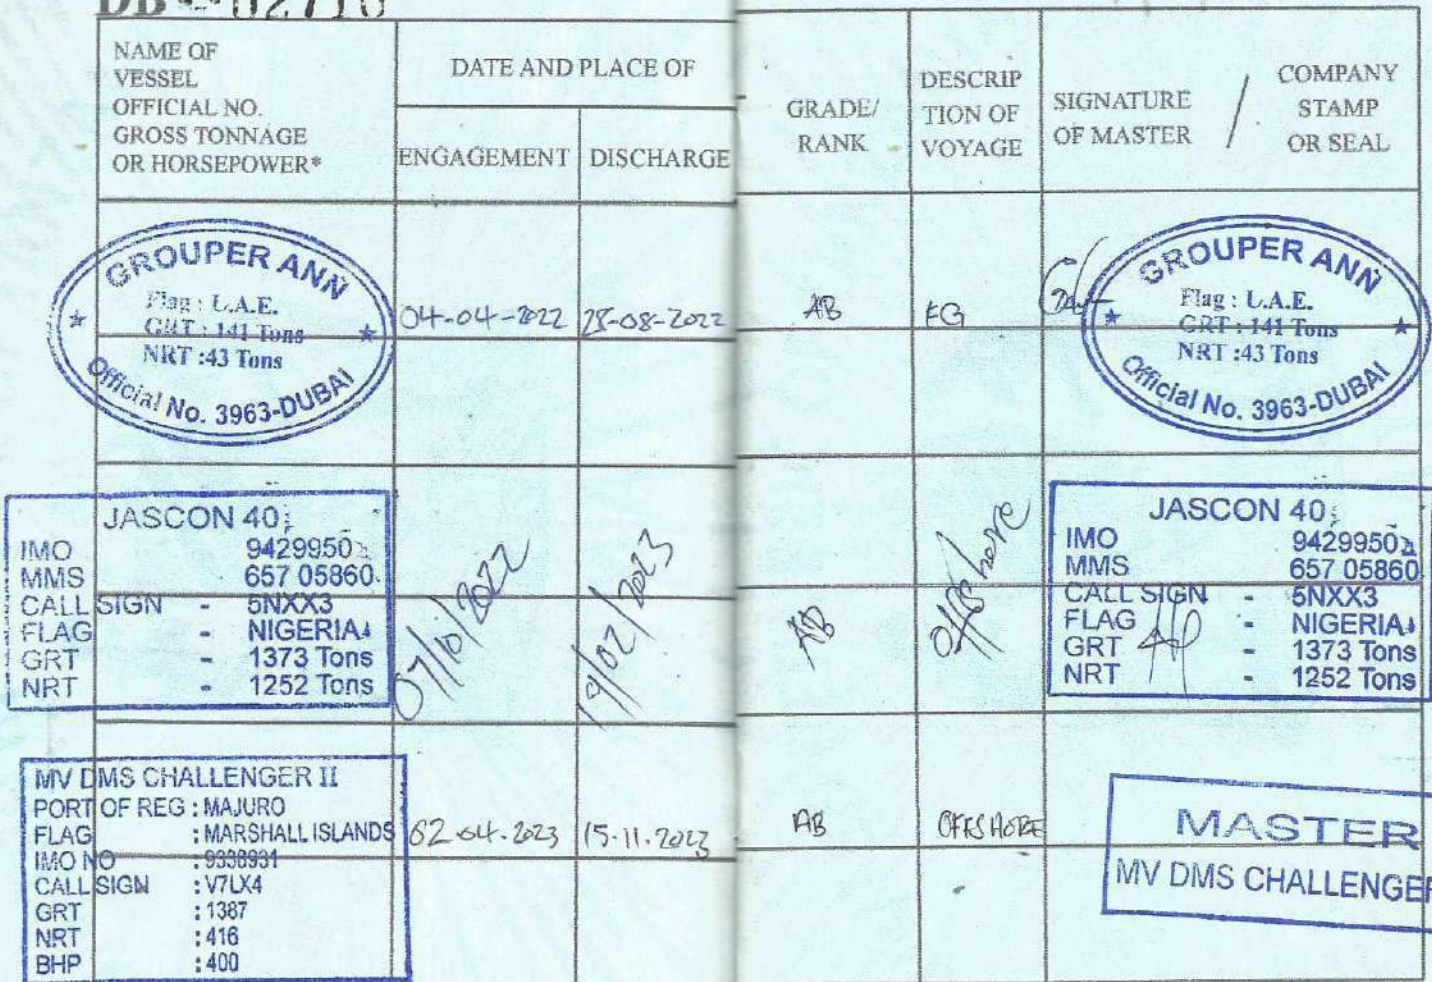 DB - 02716
NAME OF
VESSEL
OFFICIAL NO.
GROSS TONNAGE
OR HORSEPOWER*
DATE AND PLACE OF
ENGAGEMENT
DISCHARGE
GRADE/
RANK
DESCRIP
TION OF
VOYAGE
SIGNATURE
OF MASTER
/
COMPANY
STAMP
OR SEAL
GROUPER ANN
Flag : U.A.E.
GRT : 141 Tons
NRT :43 Tons
Official No. 3963-DUBAI
04-04-2022
28-08-2022
AB
FG
GROUPER ANN
Flag : U.A.E.
GRT : 141 Tons
NRT :43 Tons
Official No. 3963-DUBAI
JASCON 40
IMO 9429950
MMS 657 05860
CALL SIGN - 5NXX3
FLAG - NIGERIA
GRT - 1373 Tons
NRT - 1252 Tons
07/10/2022
19/02/2023
AB
Offshore
JASCON 40
IMO 9429950
MMS 657 05860
CALL SIGN - 5NXX3
FLAG - NIGERIA
GRT - 1373 Tons
NRT - 1252 Tons
MV DMS CHALLENGER II
PORT OF REG : MAJURO
FLAG : MARSHALL ISLANDS
IMO NO : 9338931
CALL SIGN : V7LX4
GRT : 1387
NRT : 416
BHP : 400
02.04.2023
15.11.2023
AB
OFFSHORE
MASTER
MV DMS CHALLENGER